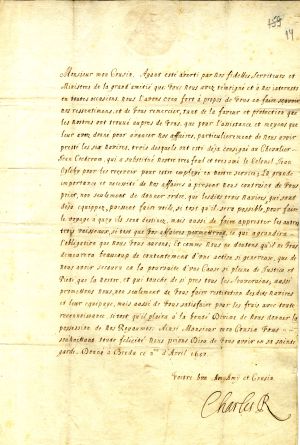 159
14
Monsieur mon Cousin. Ayant esté averti par nos fidelles Serviteurs et
Ministres de la grand amitié que Vous nous avez témoigné et a nos interests
en toutes occasions. Nous l'avons creu fort à propos de Vous en faire scavoir
nos ressentimens, et de Vous remercier, tant de la faveur et protection que
les nostres ont trouvé auprès de Vous, que pour l'assistance et moyens que
leur avez donné pour avancer nos affaires, particulierement de nous avoir
presté les six navires, trois desquels ont esté deja consignés au Chevalier
Jean Cockeran, qui a substitué nostre feal et tres amé le Colonel Jean
pour les recevoir pour estre employés en nostre service. La grande
importance et necessité de nos affaires à present nous contraint de Vous
prier, non seulement de donner ordre, que lesdits trois navires, qui sont
deja equippés, puissent faire voile, si tost qu'il sera possible, pour faire
le voyage à quoy ils sont destinés, mais aussi de faire apprester les autres
trois vaisseaux, si tost que Vos affaires permettront, ce qui agrandira
l'obligation que Vous avons. Et comme Nous ne doutons qu'il ne Vous
demeurera beaucoup de contentement d'une action si genereuse, que de
nous avoir secouru en la poursuite d'une Cause si pleine de Justice et
Pieté que la nostre, et qui touche de si pres tous les Souverains, aussi
promettons Nous, non seulement de Vous faire restitution desdits navires
et leur equipage, mais aussi de Vous satisfaire pour les frais avec toute
reconnoissance, si tost qu'il plaira à la bonté Divine de Nous donner la
possession de nos Royaumes. Ainsi Monsieur mon Cousin Vous
souhaittons toute felicité Nous prions Dieu de Vous avoir en sa sainte
garde. Donné à Breda ce d'Avril
Vostre bien Cousin
Charles R